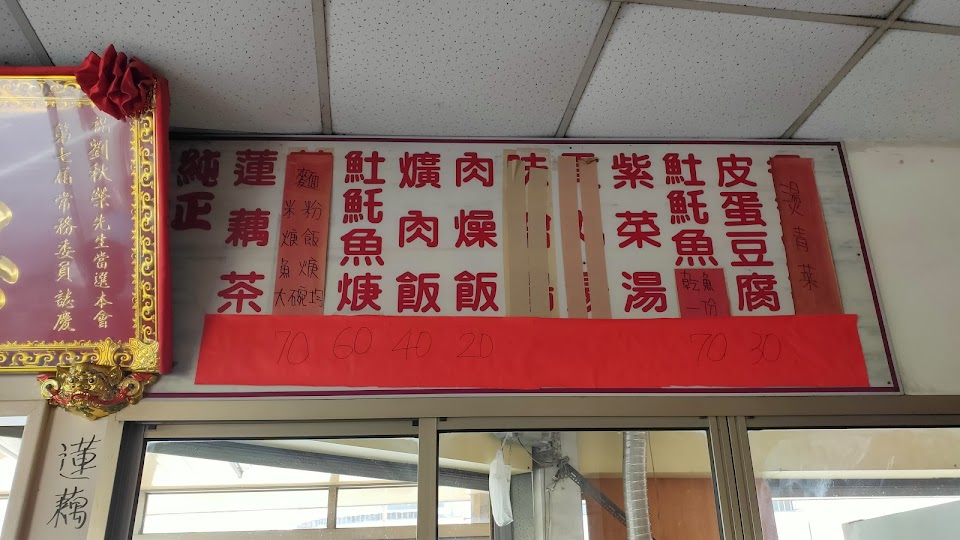 劉秋榮先生當選本會
第七屆常務委員誌慶
純正
蓮藕茶
麵
米粉
焿飯
魚焿
大碗均
𩵚魠魚焿
爌肉飯
肉燥飯
紫菜湯
𩵚魠魚
乾魚
一份
皮蛋豆腐
燙青菜
70 60 40 20 70 30
蓮藕